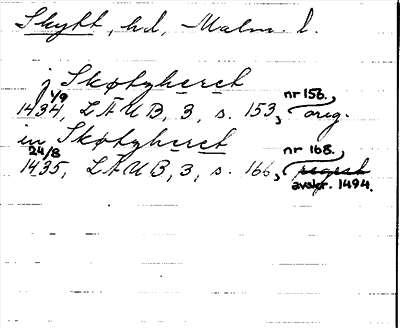 Skytt, hd, Malm. l.
j Skøtyheret
1434, 1/9 LÄUB, 3, s. 153, nr 156., orig.
in Skøtyheret
1435, 24/8 LÄUB, 3, s. 166, nr 168. regest
avskr. 1494.